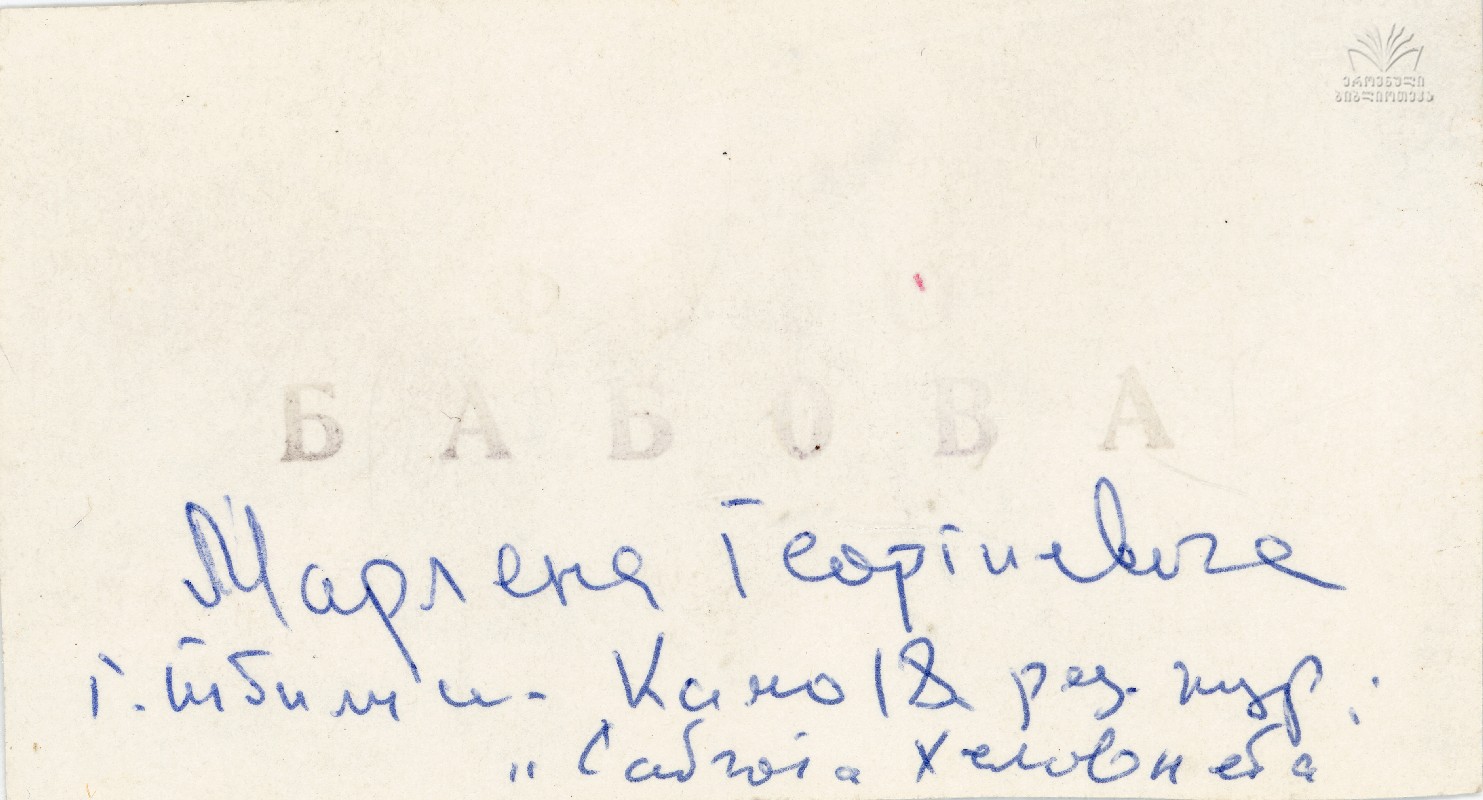 ეროვნული
ბიბლიოთეკა
БАБОВА
Марлена Георгиевича
г. Тбилиси - Камо 18 ред. жур.:
„Сабчота Хеловнеба